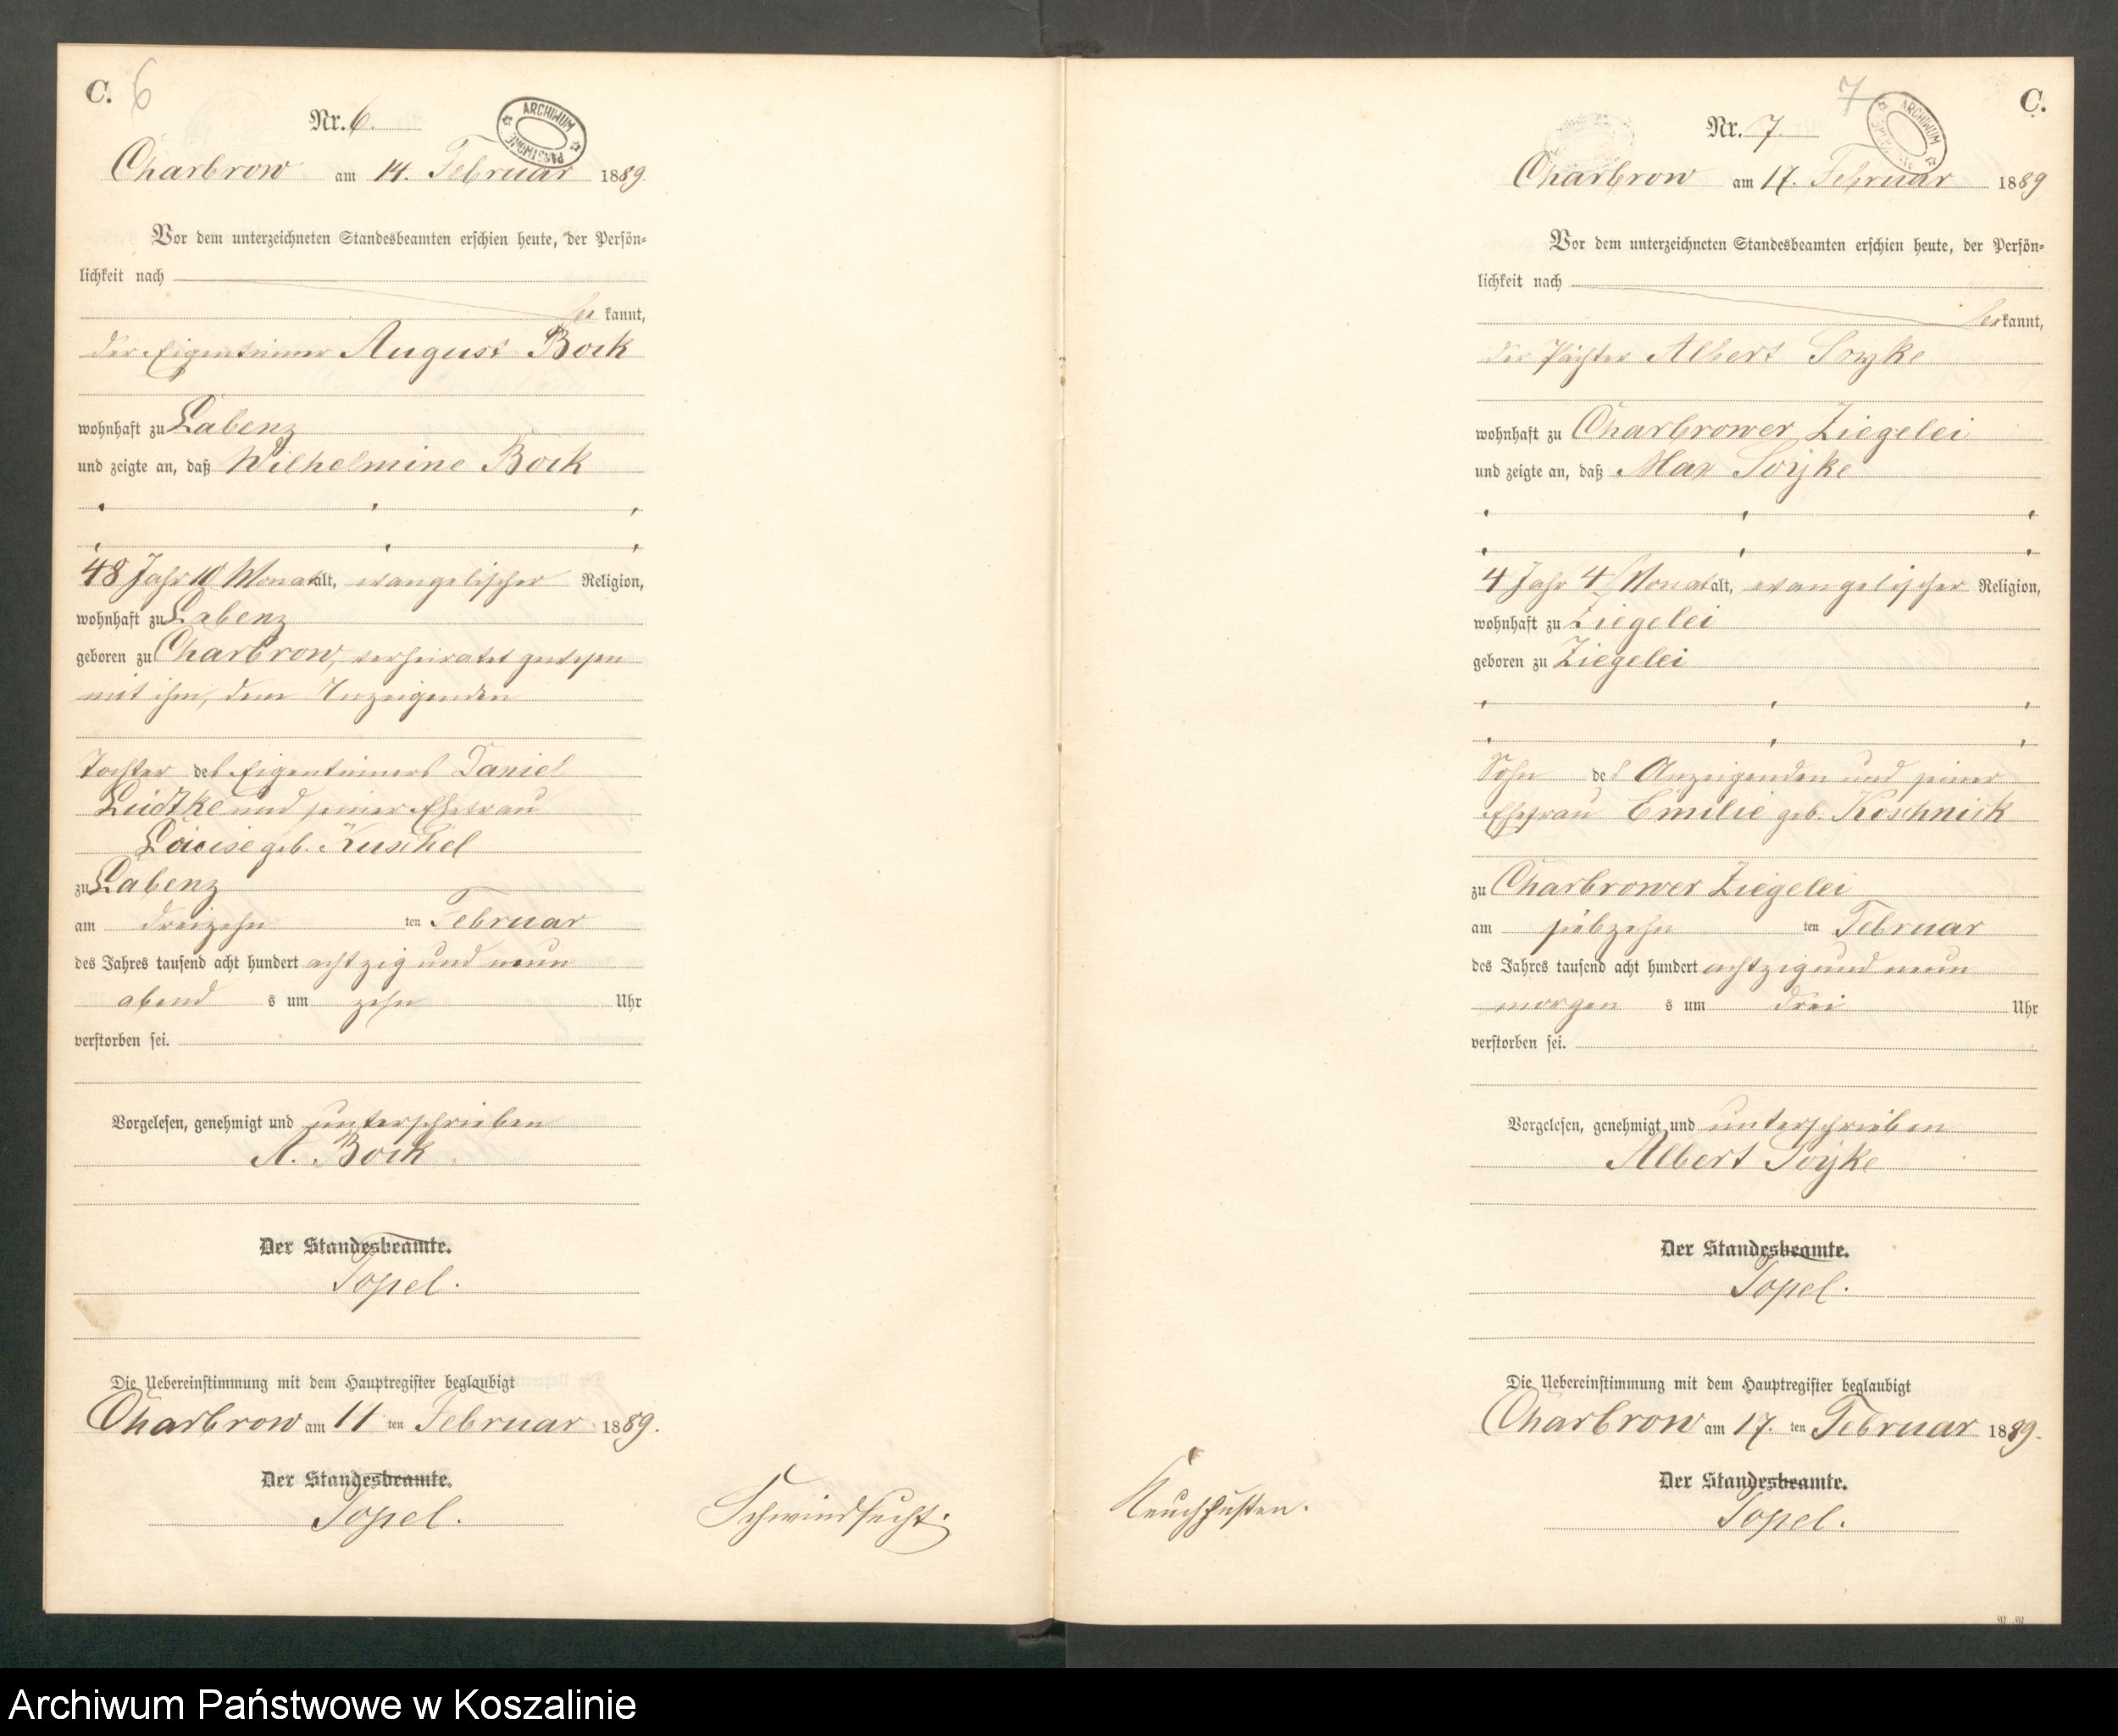 C. 6
Nr. 6.
ARCHIWUM PAŃSTWOWE
Charbrow am 14. Februar 1889.
Vor dem unterzeichneten Standesbeamten erschien heute, der Persön-
lichkeit nach
be kannt,
der Eigentümer August Bock
wohnhaft zu Labenz
und zeigte an, daß Wilhelmine Bock
48 Jahr 10 Monat alt, evangelischer Religion,
wohnhaft zu Labenz
geboren zu Charbrow, verheiratet gewesen
mit ihm, dem Anzeigenden
Tochter des Eigentümers Daniel
Lüdtke und seiner Ehefrau
Louise geb. Kuschel
zu Labenz
am dreizehn ten Februar
des Jahres tausend acht hundert achtzig und neun
abend s um zehn Uhr
verstorben sei.
Vorgelesen, genehmigt und unterschrieben
A. Bock
Der Standesbeamte.
Topel.
Die Uebereinstimmung mit dem Hauptregister beglaubigt
Charbrow am 14 ten Februar 1889.
Der Standesbeamte.
Topel.
Schwindsucht.
7 C.
Nr. 7.
ARCHIWUM
Charbrow am 17. Februar 1889
Vor dem unterzeichneten Standesbeamten erschien heute, der Persön-
lichkeit nach
bekannt,
der Pächter Albert Soyke
wohnhaft zu Charbrower Ziegelei
und zeigte an, daß Max Soyke
4 Jahr 4 Monat alt, evangelischer Religion,
wohnhaft zu Ziegelei
geboren zu Ziegelei
Sohn des Anzeigenden und seiner
Ehefrau Emilie geb. Koschnick
zu Charbrower Ziegelei
am siebzehn ten Februar
des Jahres tausend acht hundert achtzig und neun
morgen s um drei Uhr
verstorben sei.
Vorgelesen, genehmigt und unterschrieben
Albert Soyke
Der Standesbeamte.
Topel.
Die Uebereinstimmung mit dem Hauptregister beglaubigt
Charbrow am 17. ten Februar 1889.
Der Standesbeamte.
Topel.
Keuchhusten.
Archiwum Państwowe w Koszalinie